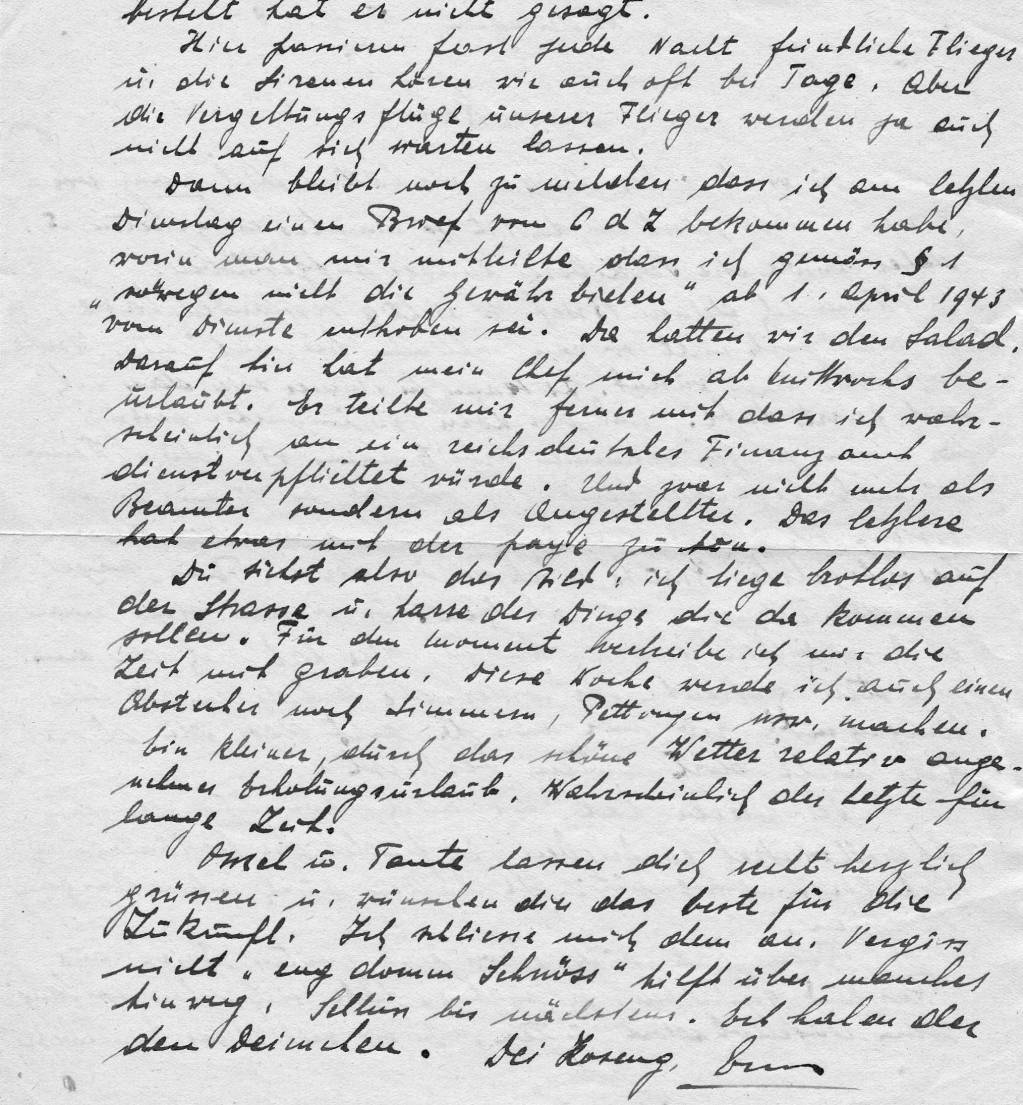 bestellt hat er nicht gesagt.
Hier passieren fast jede Nacht feindliche Flieger
u. die Sirenen hören wir auch oft bei Tage. Aber
die Vergeltungsflüge unserer Flieger werden ja auch
nicht auf sich warten lassen.
Dann bleibt noch zu melden dass ich am letzten
Dienstag einen Brief vom C d Z bekommen habe,
worin man mir mitteilte dass ich gemäss § 1
nicht die Gewähr bieten" ab 1. April 1943
vom Dienste enthoben sei. Da hatten wir den Salad.
Darauf hin hat mein Chef mich ab Mittwochs be-
urlaubt. Er teilte mir ferner mit dass ich wahr-
scheinlich an ein reichsdeutsches Finanzamt
dienstverpflichtet würde. Und zwar nicht mehr als
Beamter sondern als Angestellter. Das letztere
hat etwas mit der paye zu tun.
Du siehst also das Bild, ich liege brotlos auf
der Strasse u. harre der Dinge die da kommen
sollen. Für den Moment vertreibe ich mir die
Zeit mit graben. Diese Woche werde ich auch einen
Abstecher nach Simmern, Pettingen usw. machen.
Ein kleiner, durch das schöne Wetter relativ ange-
nehmer Erholungsurlaub. Wahrscheinlich der letzte für
lange Zeit.
Onkel u. Tante lassen dich recht herzlich
grüssen u. wünschen dir das beste für die
Zukunft. Ich schliesse mich dem an. Vergiss
nicht "eng domm Schnöss" hilft über manches
hinweg. Schluss bis nächstens. Ech halen der
den Deimchen. Dei Koseng,